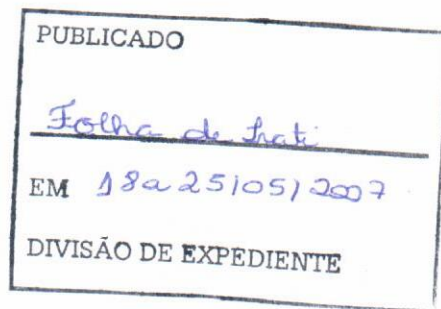 PUBLICADO
Folha de Irati
EM 18 a 25/05/2007
DIVISÃO DE EXPEDIENTE